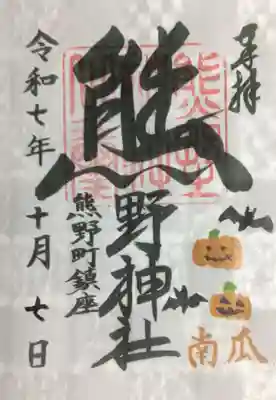 奉拝
熊野神社
熊野町鎮座
令和七年十月七日
南瓜